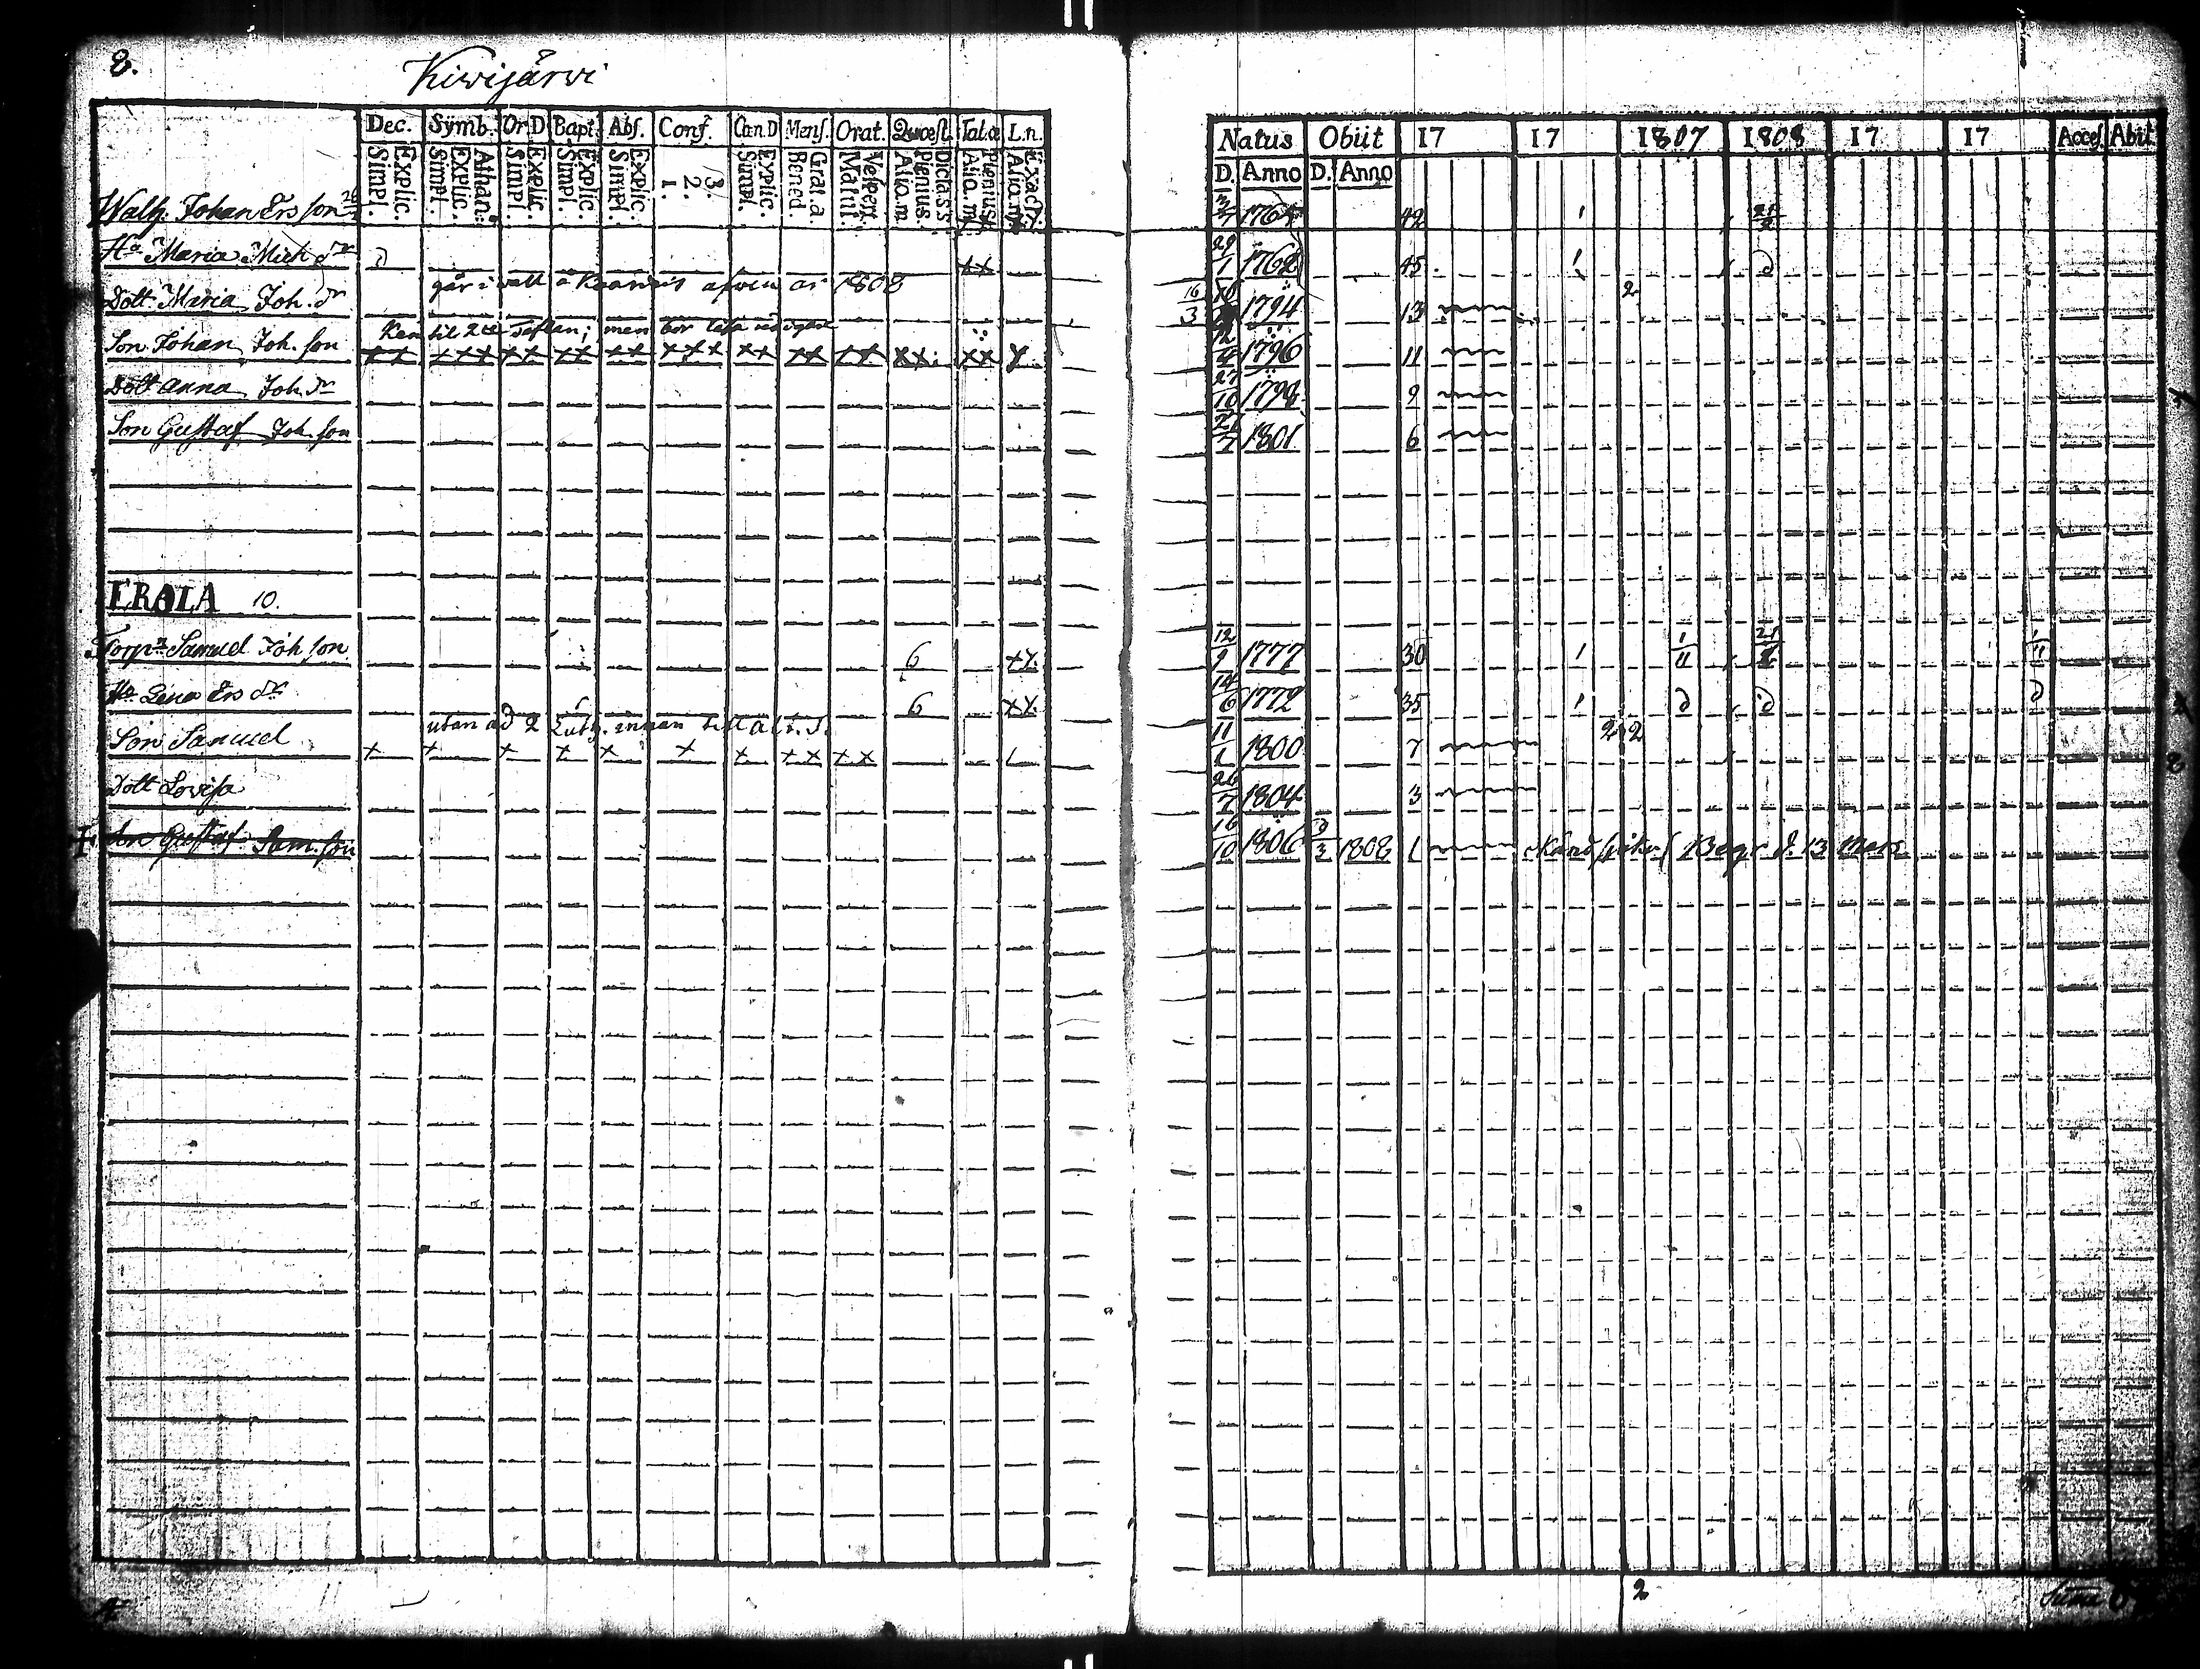 8.
Kiwijärwi
Dec. Symb. Or.D Bapt. Abs. Conf. Cæn.D Mens. Orat. Quæst. Tal.æ L.n.
Explic. Simpl. Athan. Explic. Simpl. Explic. Simpl. Explic. Simpl. Explic. Simpl. 3. 2. 1. Explic. Simpl. Grat.a. Bened. Vespert. Matut. Dict.a S.S. Plenius. Aliq.m. Plenius Aliq.m. Exact. Aliq.m.
Natus Obiit 17 17 1807 1808 17 17 Acces. Abiit
D. Anno D. Anno
Johan Ersson 3/7 1765 42 1 21/2
Hu Maria Mich dr 29/1 1762 45 1 d
går i wall
1808
Dott. Maria Joh. dr 16/3 1794 13 2
Ken til 2re taflan; men bör läsa
Son Johan Joh. son ×× ××× ×× ×× ×× ××× ×× ×× ×× ××. ×× 12/4 1796 11
Dott Anna Joh. dr 27/10 1798 9
Son Gustaf Joh. son 21/7 1801 6
EROLA 10.
Torp. Samuel Joh son 6 ×× 12/9 1777 30 1 1/11 21/2 1/11
Hu Lena Ers dr 6 ×× 14/6 1772 35 1 d d d
utan ad 2 innan till
Son Samuel × × × × × × × ×× ×× 11/1 1800 7 2 2
Dott Lovisa 26/7 1804 3
Son Gustaf Sam. son 16/10 1806 3/3 1808 1 Begr. d. 13 Mars
2
Suma